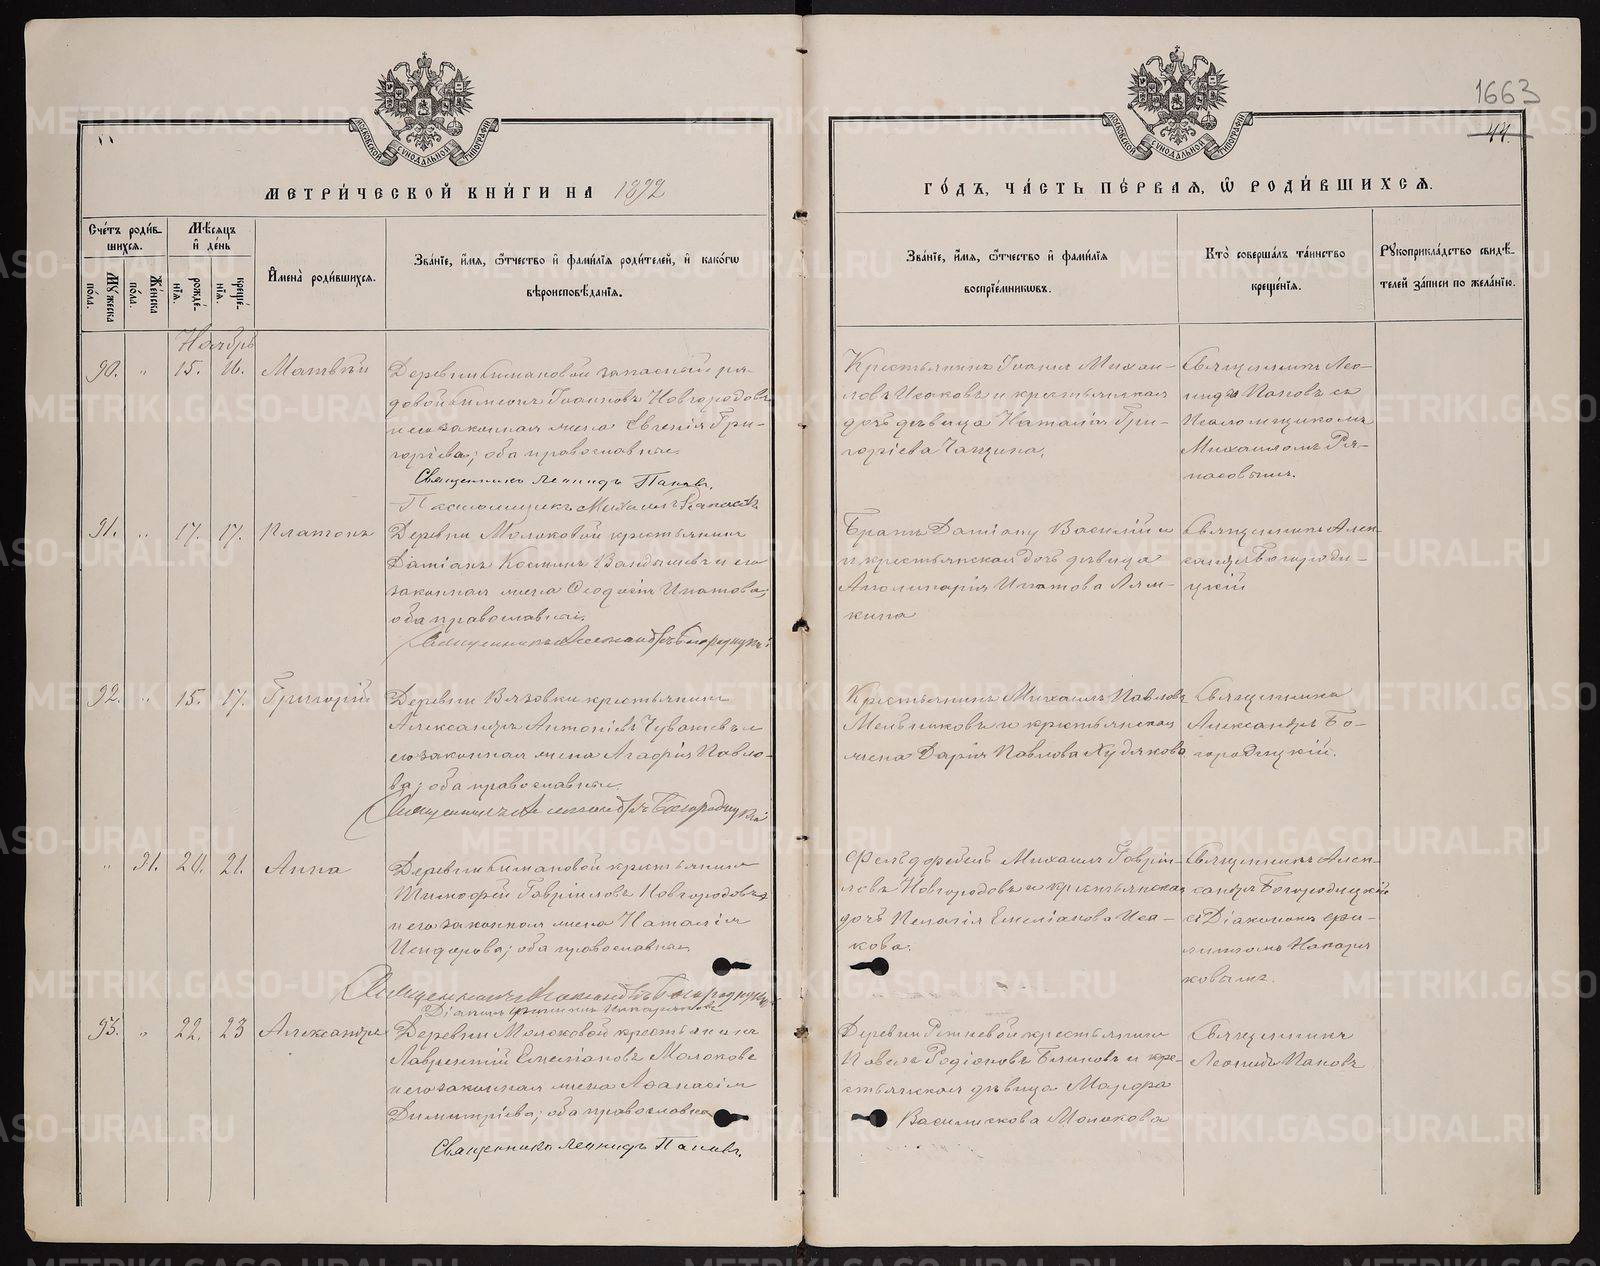 1663
44.
МЕТРИ́ЧЕСКОЙ КНИ́ГИ НА 1892
ГО́ДЪ, ЧА́СТЬ ПЕ́РВАЯ, Ѡ РОДИ́ВШИХСЯ.
Сче́тъ роди́в-
шихся.
Мѣ́сяцъ
и де́нь
Му́жеска
по́ла.
Же́нска
по́ла.
рожде́-
нїя.
креще́-
нїя.
Имена̀ роди́вшихся.
Зва́нїе, и́мя, ѻ́тчество и фами́лїя роди́телей, и како́гѡ
вѣроисповѣ́данїя.
Зва́нїе, и́мя, ѻ́тчество и фами́лїя
воспрїе́мниковъ.
Кто̀ соверша́лъ та́инство
креще́нїя.
Рукоприкла́дство свидѣ́-
телей за́писи по жела́нїю.
Ноябрь
90. " 15. 16. Матвѣй
Деревни Симановой запасный ря-
довой Симеонъ Іоанновъ Новгородовъ
и его законная жена Евгенія Гри-
горіева; оба православные.
Священникъ Леонидъ Поповъ.
Псаломщикъ Михаилъ
Крестьянинъ Іоаннъ Михаи-
ловъ Исаковъ и крестьянская
дочь дѣвица Наталія Гри-
горіева
Священникъ Лео-
нидъ Поповъ съ
Псаломщикомъ
Михаиломъ Ря-
пасовымъ.
91. " 17. 17. Платонъ
Деревни Молоковой крестьянинъ
Даміанъ Косминъ и его
законная жена Ѳеодосія Ипатова,
оба православные.
Священникъ Александръ Богородицкій
Братъ Даміану Василій и
и крестьянская дочь дѣвица
Аполинарія Ипатова Лям-
кина
Священникъ Алек
сандръ Богороди-
цкій
92. " 15. 17. Григорій
Деревни Вязовки крестьянинъ
Александръ Антоніевъ Чувашевъ и
его законная жена Агафія Павло-
ва; оба православные.
Священникъ Александръ Богородицкій
Крестьянинъ Михаилъ Павловъ
Мельниковъ и крестьянская
жена Дарія Павлова Худякова
Священникъ
Александръ Бо-
городицкій.
" 91. 20. 21. Анна
Деревни Симановой крестьянинъ
Тимофей Гавріиловъ Новгородовъ
и его законная жена Наталія
Исидорова; оба православные.
Священникъ Александръ Богородицкій
Фельдфебель Михаилъ Гаврі-
ловъ Новгородовъ и крестьянская
дочь Пелагія Емеліанова Иса-
кова.
Священникъ Алек-
сандръ Богородицкій
съ Діакономъ
93. " 22. 23 Александръ
Деревни Молоковой крестьянинъ
Лаврентій Емеліановъ Молоковъ
и его законная жена Аѳанасія
Димитріева; оба православные
Священникъ Леонидъ Поповъ.
Деревни крестьянинъ
Павелъ Родіоновъ Блиновъ и кре-
стьянская дѣвица Марфа
Василискова Молокова
Священникъ
Леонидъ Поповъ
METRIKI.GASO-URAL.RU